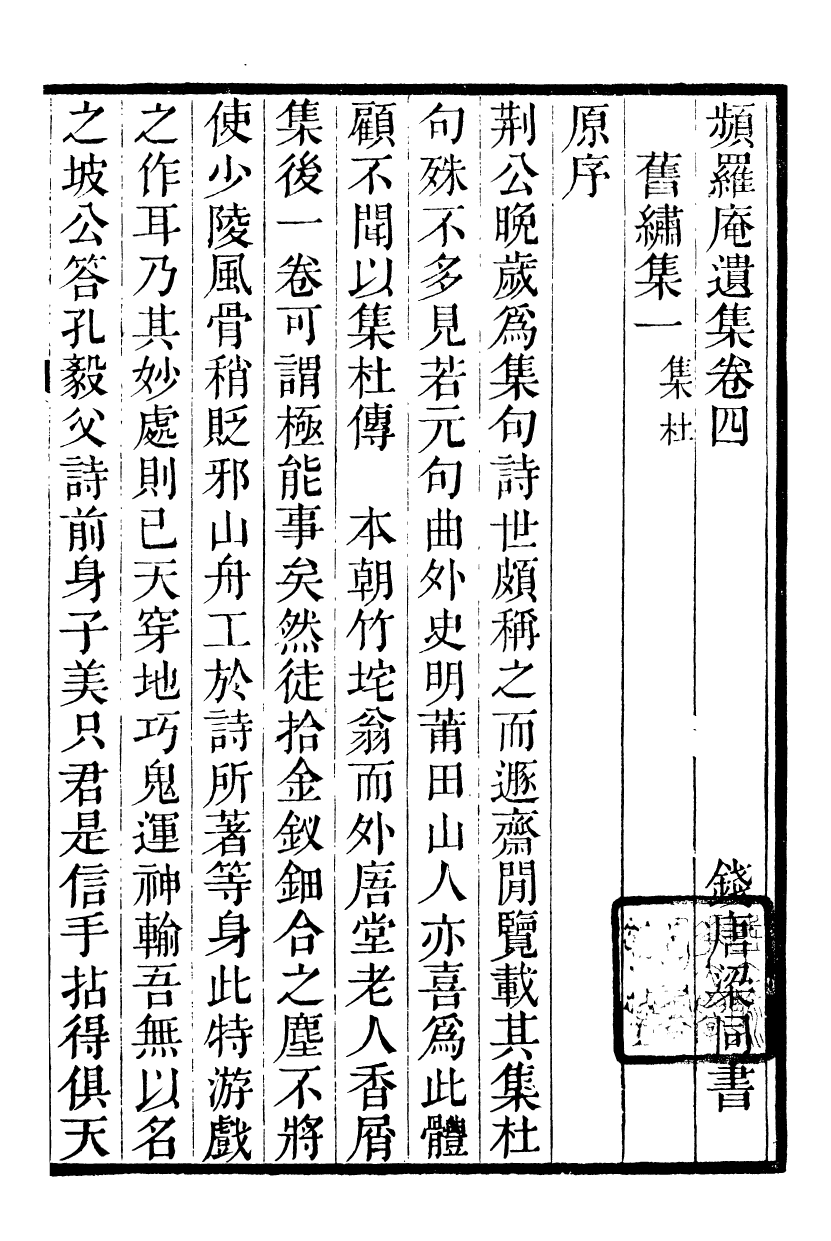 頻羅庵遺集卷四　錢唐梁同書
舊繡集一　集杜
原序
荆公晚歲爲集句詩世頗稱之而遯齋閒覽載其集杜
句殊不多見若元句曲外史明莆田山人亦喜爲此體
顧不聞以集杜傳　本朝竹垞翁而外唐堂老人香屑
集後一卷可謂極能事矣然徒拾金釵鈿合之塵不將
使少陵風骨稍貶邪山舟工於詩所著等身此特游戲
之作耳乃其妙處則已天穿地巧鬼運神輸吾無以名
之坡公答孔毅父詩前身子美只君是信手拈得俱天